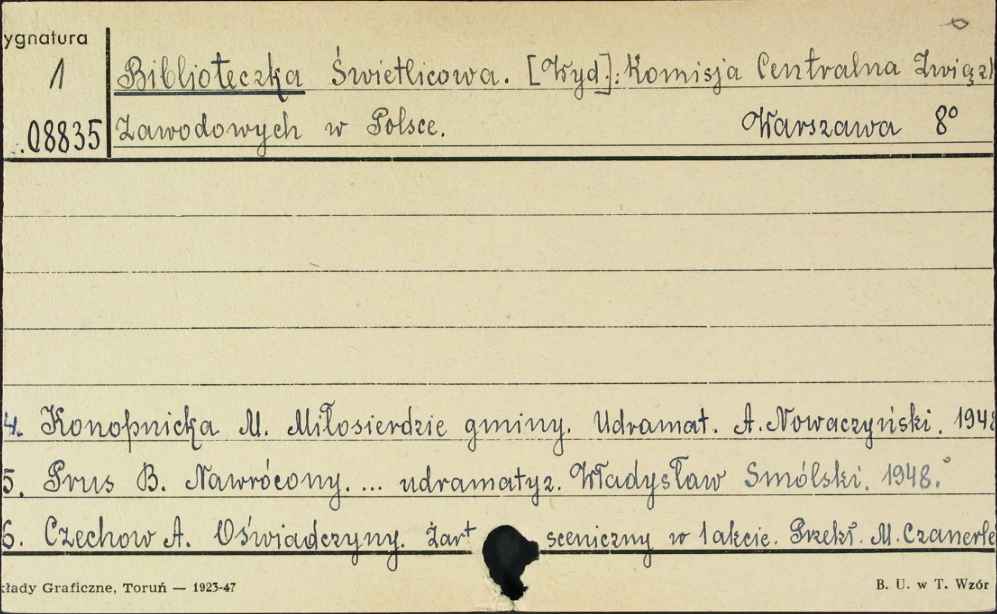 ygnatura
1 Biblioteczka Świetlicowa. [Wyd.]: Komisja Centralna Związ
.08835 Zawodowych w Polsce. Warszawa 8°
4. Konopnicka M. Miłosierdzie gminy. Udramat. A. Nowaczyński. 1948
5. Prus B. Nawrócony. ... udramatyz. Władysław Smólski. 1948.
6. Czechow A. Oświadczyny. Żart sceniczny w 1 akcie. Przekł. M. Czanerle
kłady Graficzne, Toruń — 1923-47 B. U. w T. Wzór